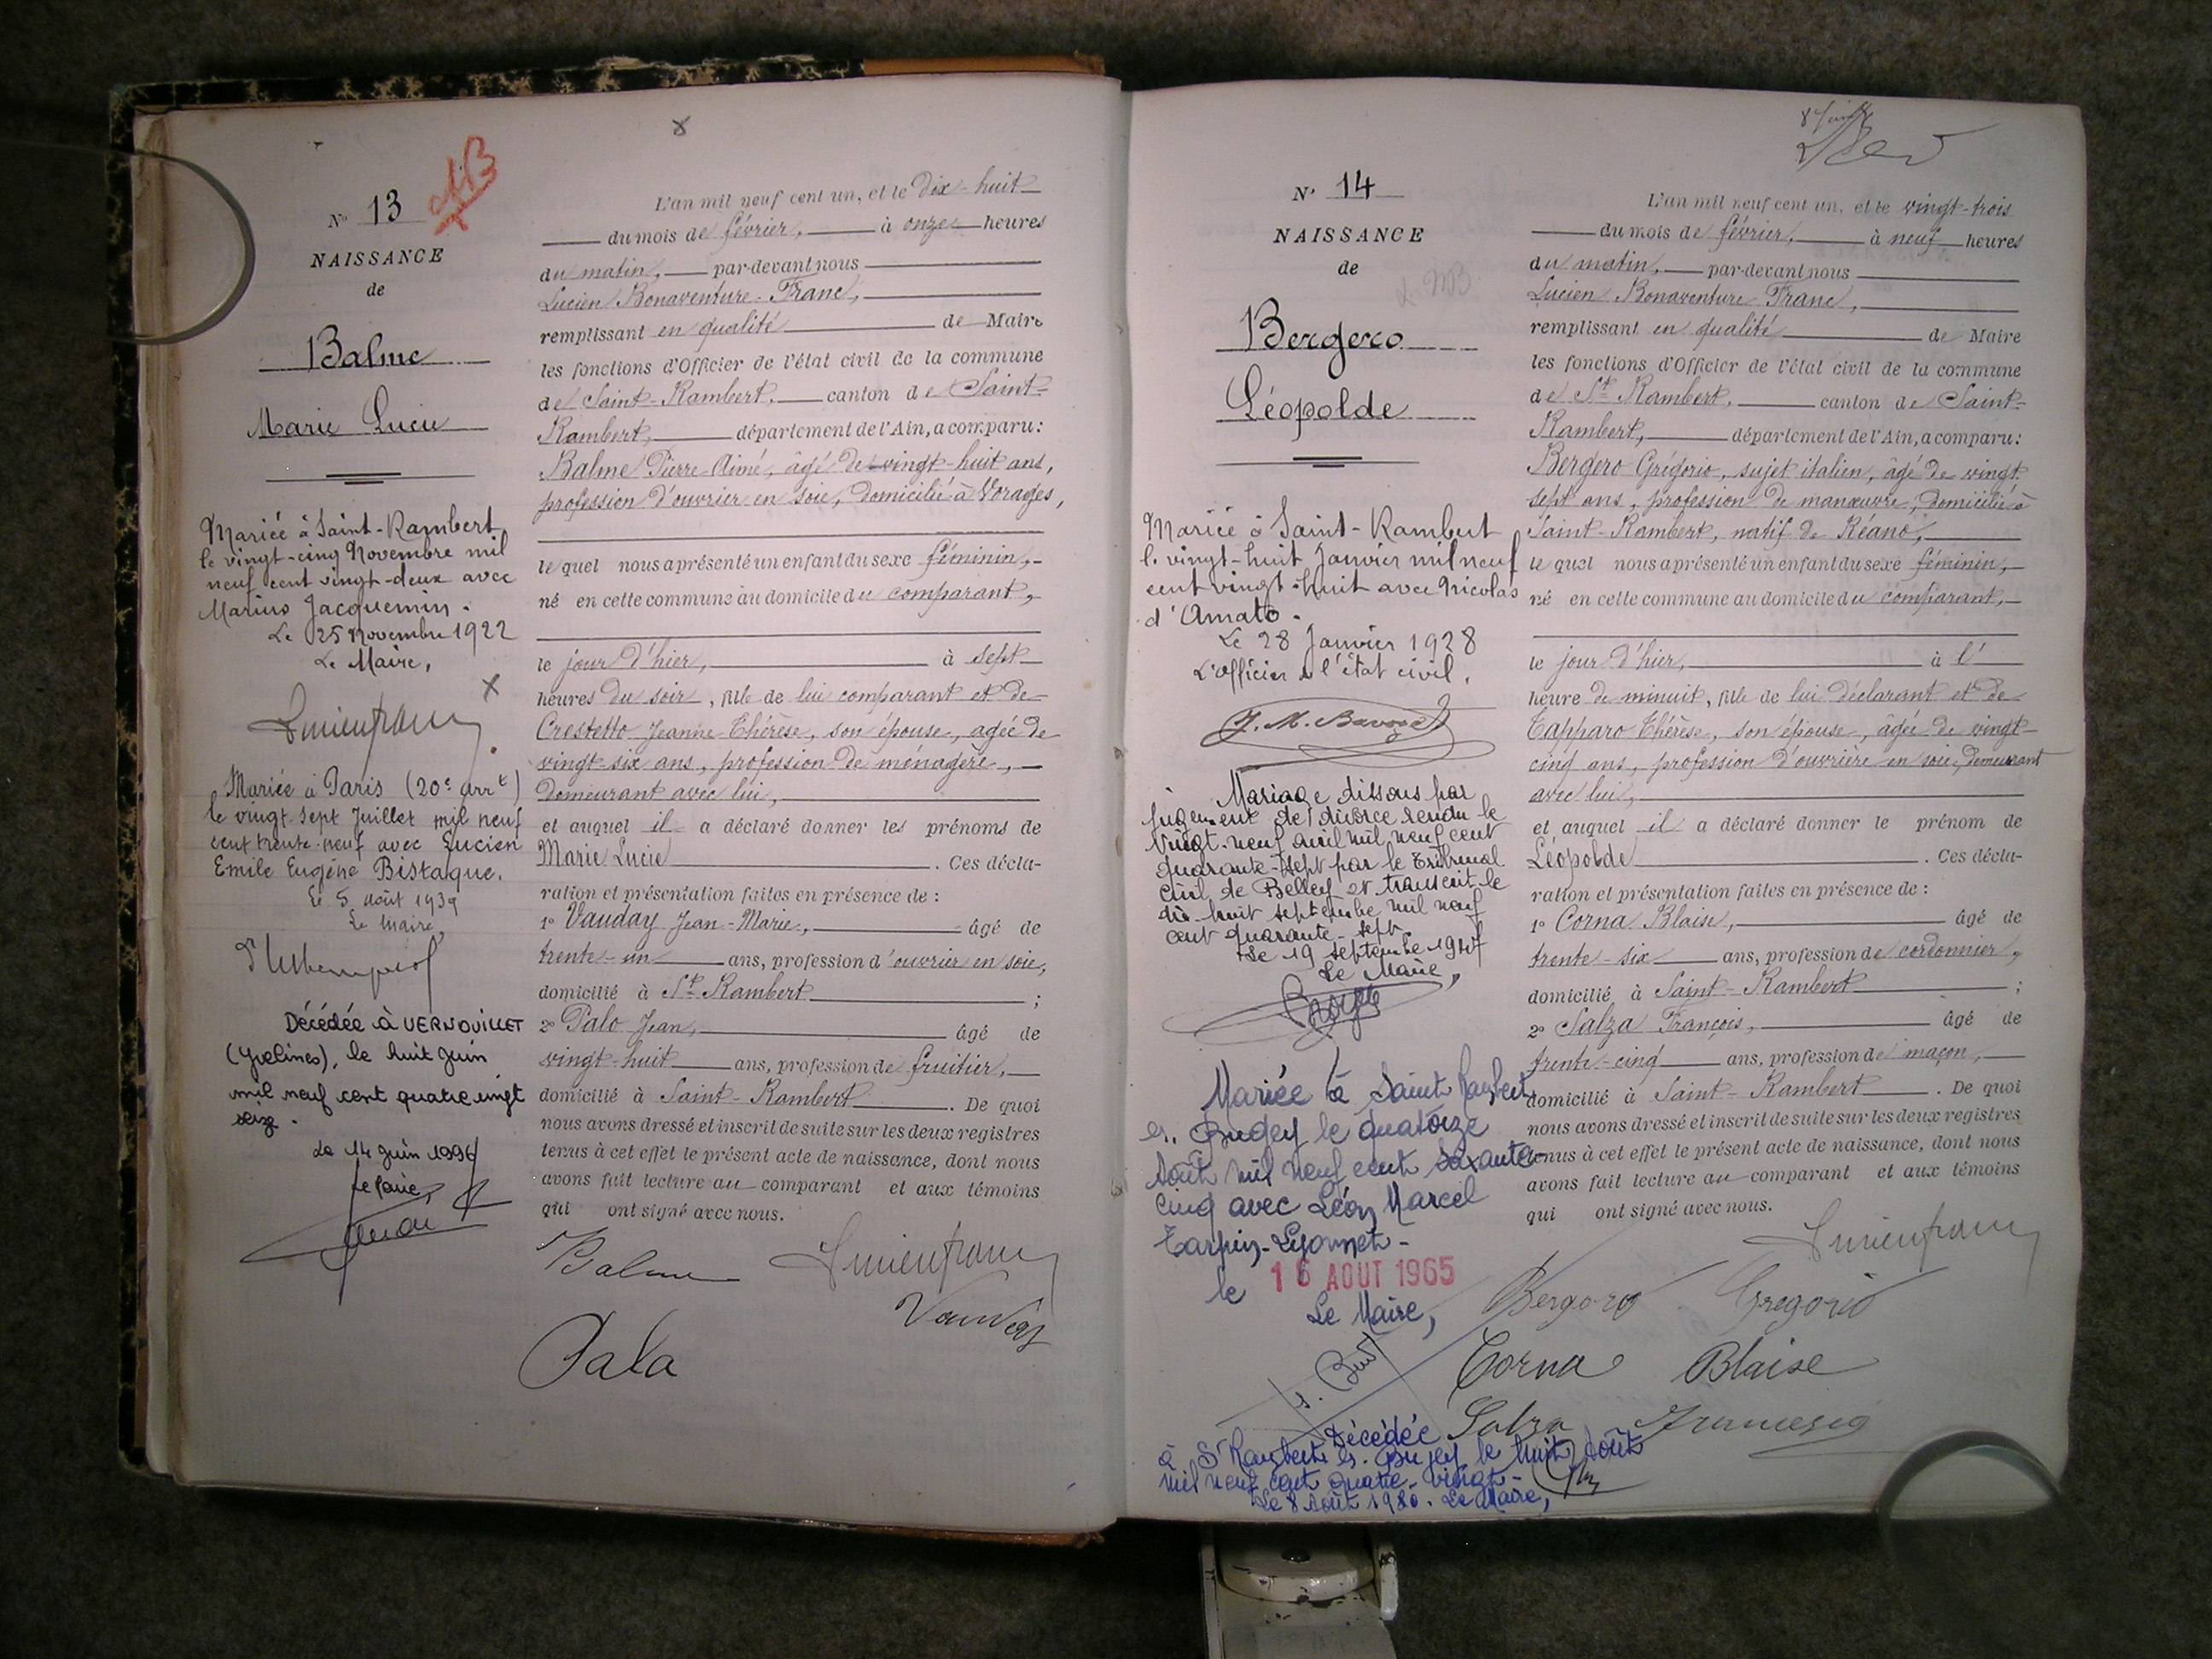 N° 13
NAISSANCE
de
Balme
Marie Lucie
Mariée à Saint-Rambert
le vingt-cinq Novembre mil
neuf cent vingt-deux avec
Marius Jacquemin.
Le 25 Novembre 1922
Le Maire,
Lucien franc
Mariée à Paris (20e arrt)
le vingt-sept Juillet mil neuf
cent trente-neuf avec Lucien
Emile Eugène Bistaque.
Le 5 août 1939
Le Maire,
Décédée à VERNOUILLET
(Yvelines), le huit juin
mil neuf cent quatre vingt
seize.
Le 14 juin 1996
L'an mil neuf cent un, et le dix-huit
du mois de février, à onze heures
du matin, par-devant nous
Lucien Bonaventure Franc,
remplissant en qualité de Maire
les fonctions d'Officier de l'état civil de la commune
de Saint-Rambert, canton de Saint-
Rambert, département de l'Ain, a comparu:
Balme Pierre-Aimé, âgé de vingt-huit ans,
profession d'ouvrier en soie, domicilié à Vorages,
le quel nous a présenté un enfant du sexe féminin,
né en cette commune au domicile du comparant,
le jour d'hier, à sept
heures du soir, fille de lui comparant et de
Crestetto Jeanne-Thérèse, son épouse, agée de
vingt-six ans, profession de ménagère,
demeurant avec lui,
et auquel il a déclaré donner les prénoms de
Marie Lucie. Ces décla-
ration et présentation faites en présence de :
1° Vauday Jean-Marie, âgé de
trente-un ans, profession d'ouvrier en soie,
domicilié à St Rambert ;
2° Palo Jean, âgé de
vingt-huit ans, profession de fruitier,
domicilié à Saint-Rambert. De quoi
nous avons dressé et inscrit de suite sur les deux registres
tenus à cet effet le présent acte de naissance, dont nous
avons fait lecture au comparant et aux témoins
qui ont signé avec nous.
Balme Lucien franc
Vauday
Pala
N° 14
NAISSANCE
de
Bergero
Léopolde
Mariée à Saint-Rambert
le vingt-huit Janvier mil neuf
cent vingt-huit avec Nicolas
d'Amato.
Le 28 Janvier 1928
L'officier de l'état civil,
Mariage dissous par
jugement de divorce rendu le
vingt-neuf avril mil neuf cent
quarante-sept par le Tribunal
Civil de Belley et transcrit le
dix-huit septembre mil neuf
cent quarante-sept
Le 19 septembre 1947
Le Maire,
Mariée à Saint Rambert
en Bugey le quatorze
Août mil neuf cent soixante
cinq avec Léon Marcel
Tarpin-Lyonnet-
le 16 AOUT 1965
Le Maire,
Décédée
à St Rambert en Bugey le huit Août
mil neuf cent quatre-vingt-
Le 8 Août 1980. Le Maire,
L'an mil neuf cent un, et le vingt-trois
du mois de février, à neuf heures
du matin, par-devant nous
Lucien Bonaventure Franc,
remplissant en qualité de Maire
les fonctions d'Officier de l'état civil de la commune
de St Rambert, canton de Saint-
Rambert, département de l'Ain, a comparu:
Bergero Grégorio, sujet italien, âgé de vingt-
sept ans, profession de manœuvre, domicilié à
Saint-Rambert, natif de Réano,
le quel nous a présenté un enfant du sexe féminin,
né en cette commune au domicile du comparant,
le jour d'hier, à l'
heure de minuit, fille de lui déclarant et de
Tapparo Thérèse, son épouse, âgée de vingt-
cinq ans, profession d'ouvrière en soie, demeurant
avec lui,
et auquel il a déclaré donner le prénom de
Léopolde. Ces décla-
ration et présentation faites en présence de :
1° Corna Blaise, âgé de
trente-six ans, profession de cordonnier,
domicilié à Saint-Rambert ;
2° Salza François, âgé de
trente-cinq ans, profession de maçon,
domicilié à Saint-Rambert. De quoi
nous avons dressé et inscrit de suite sur les deux registres
tenus à cet effet le présent acte de naissance, dont nous
avons fait lecture au comparant et aux témoins
qui ont signé avec nous.
Lucien franc
Bergero Gregorio
Corna Blaise
Salza Francesco